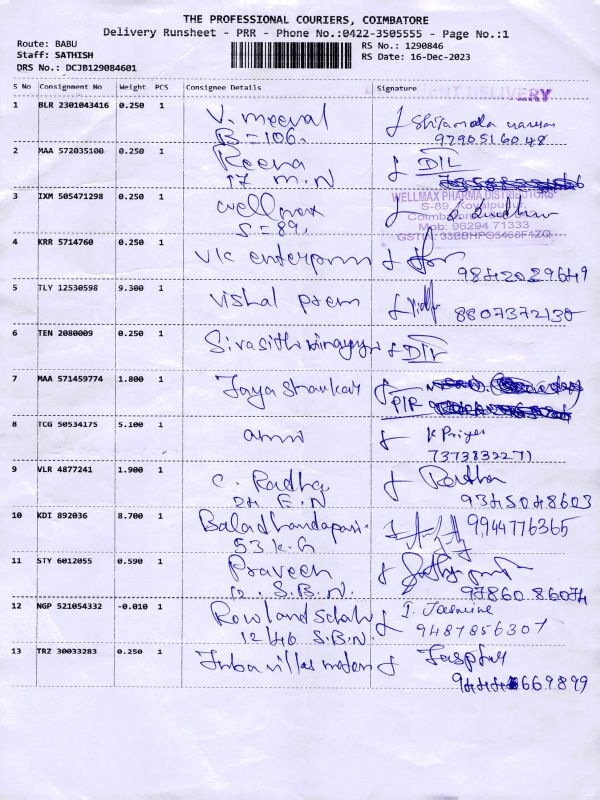 THE PROFESSIONAL COURIERS, COIMBATORE
Delivery Runsheet - PRR - Phone No.:0422-3505555 - Page No.:1
Route: BABU
Staff: SATHISH
DRS No.: DCJB129084601
RS No.: 1290846
RS Date: 16-Dec-2023
S No Consignment No Weight PCS Consignee Details Signature
DELIVERY
1 BLR 2301043416 0.250 1 V. meenal
B = 106.
9790516048
2 MAA 572035100 0.250 1 Reena DIL
17 M.N
3 IXM 505471298 0.250 1 wellmax
S = 89.
WELLMAX PHARMA DISTRIBUTORS
S-89, Kovaipudur,
Coimbatore
Mob: 96294 71333
4 KRR 5714760 0.250 1 VK enterprises
9842029649
5 TLY 12530598 9.300 1 Vishal prem
8807372130
6 TEN 2080009 0.250 1 DIL
7 MAA 571459774 1.800 1 Jaya shankar
PIR
8 TCG 50534175 5.100 1 K Priya
7373832271
9 VLR 4877241 1.900 1 C. Radha Radha
24 E.N 9345048603
10 KDI 892036 8.700 1 9944776365
53 K.G
11 STY 6012055 0.590 1 Praveen
12. S.B.N. 97860.86074
12 NGP 521054332 -0.010 1 J. Jasmine
12/46 S.B.N. 9487856307
13 TRZ 30033283 0.250 1